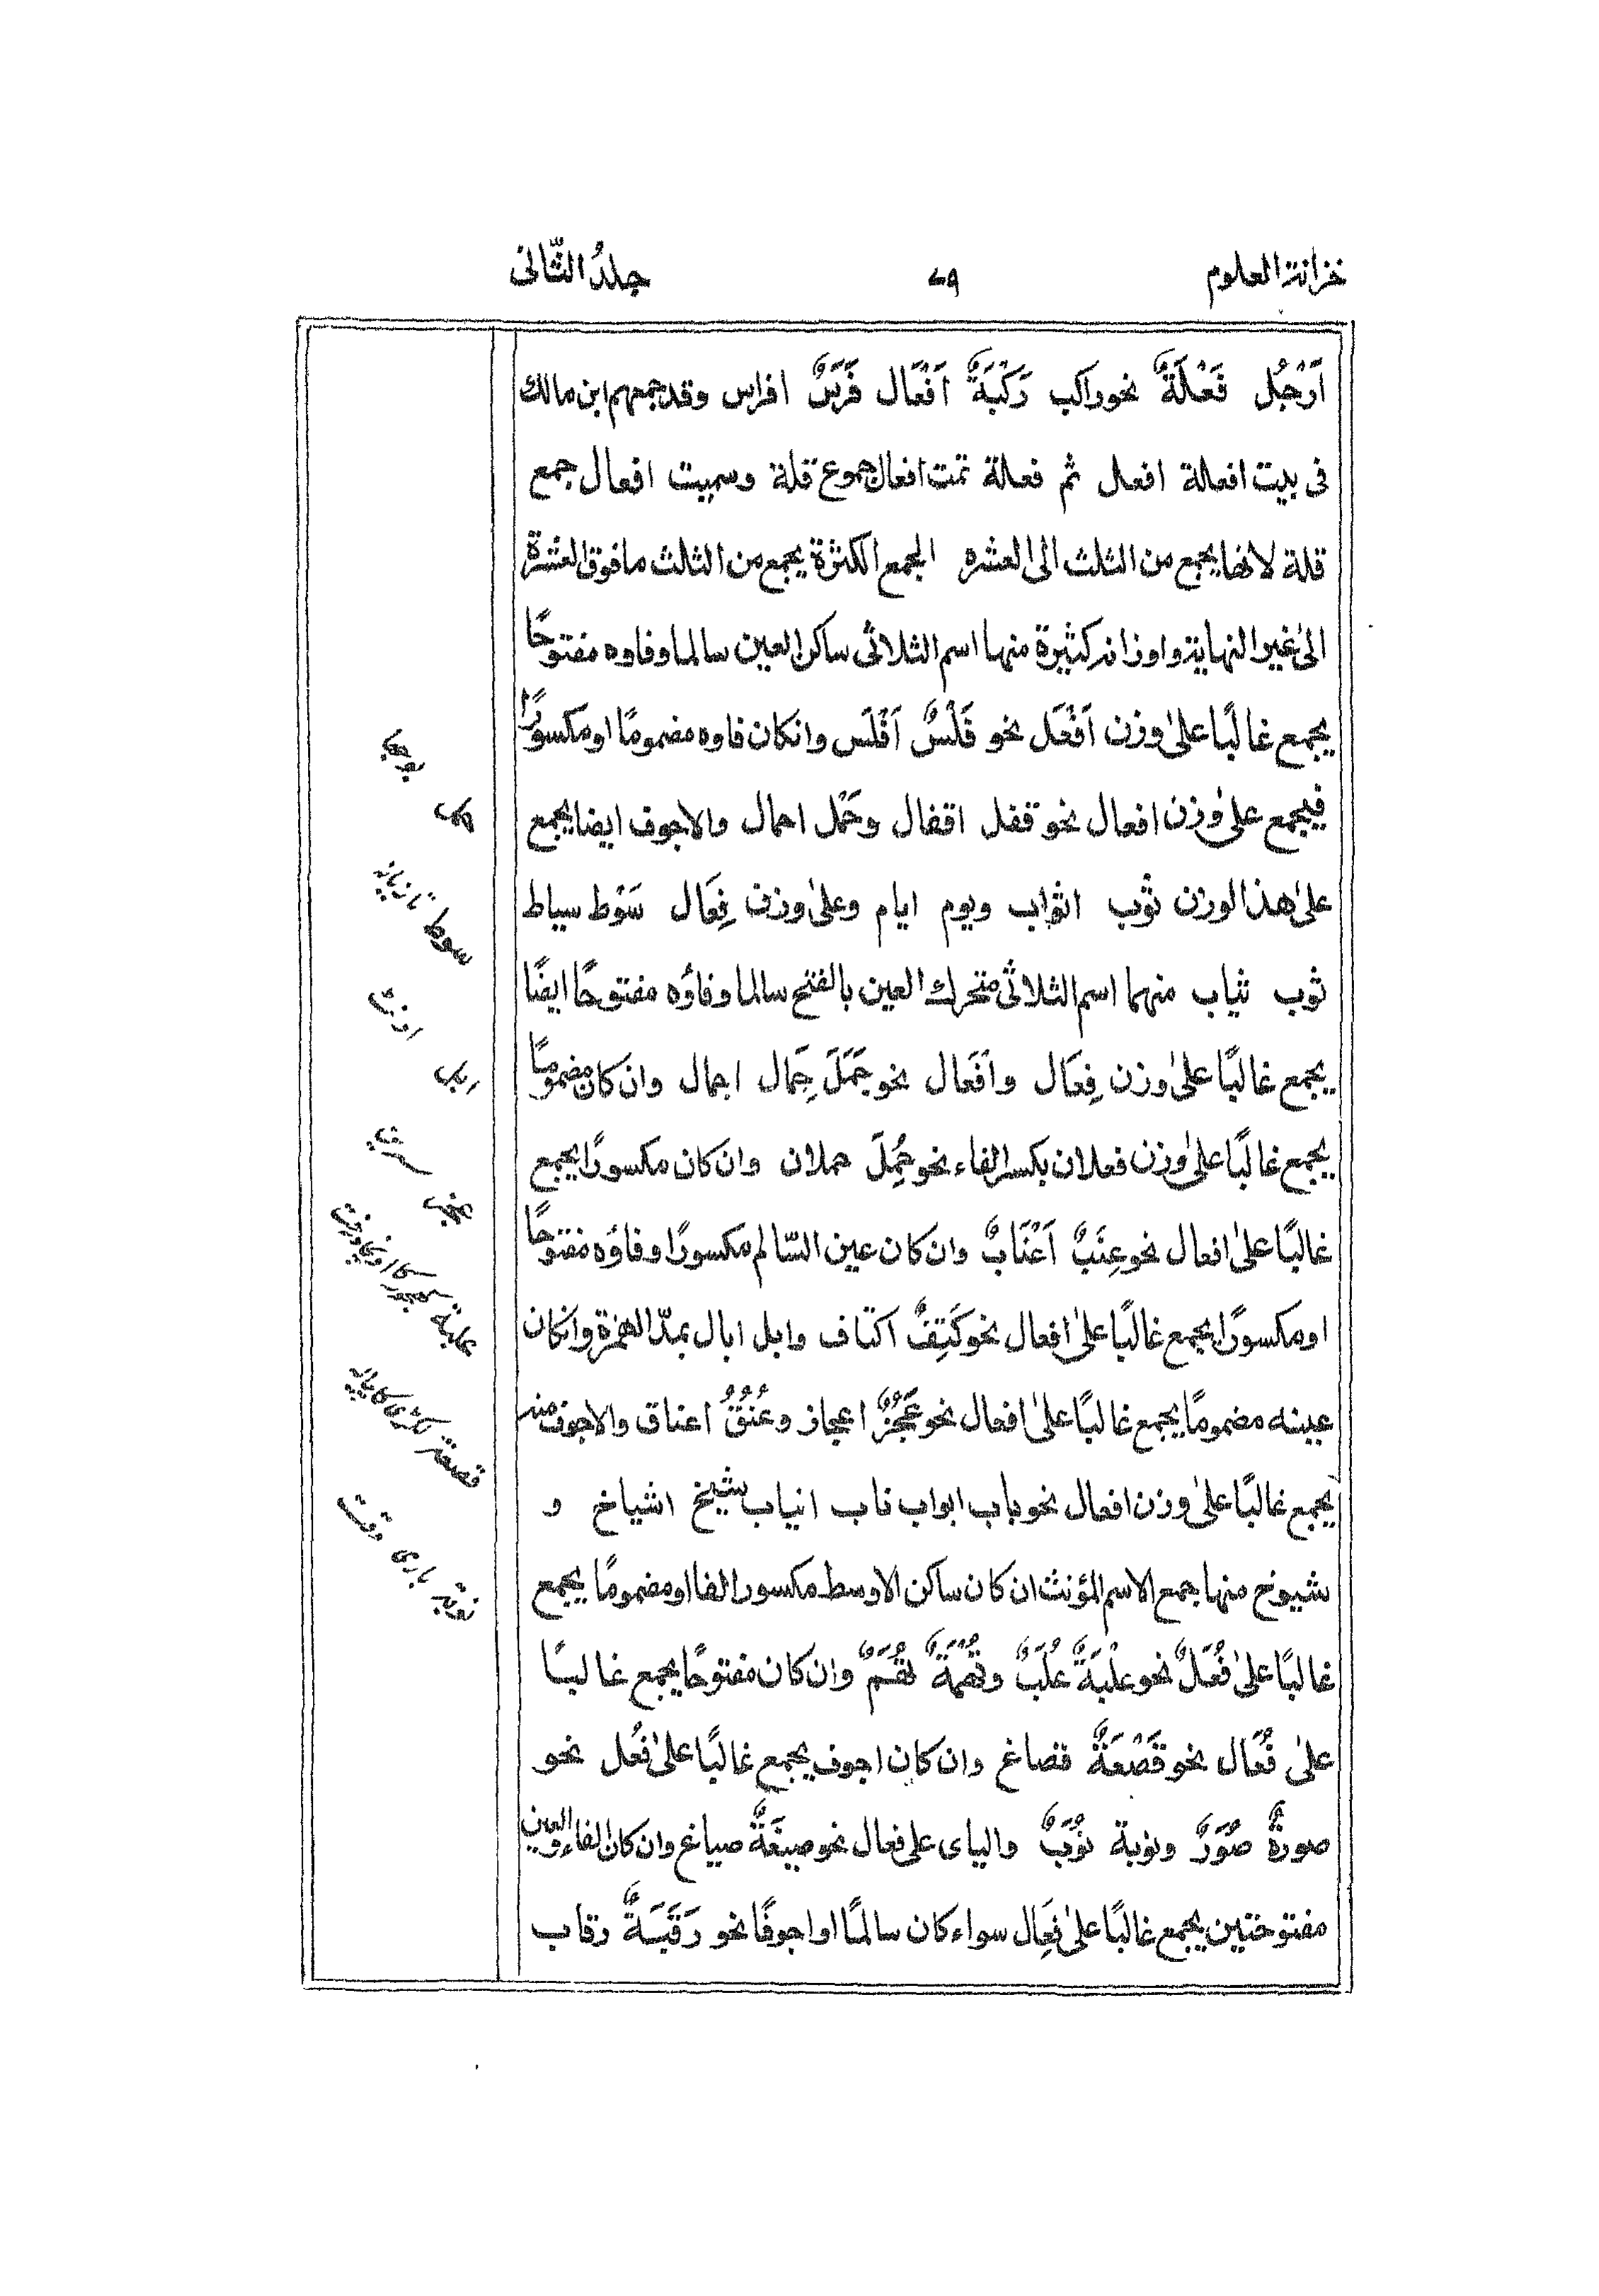 خزانة العلوم
٧٩
جلدُ الثّانى
اَرْجُل فَعْلَةٌ نحوراکب رَکْبَةٌ اَفْعَال فَرَسٌ افراس وقدجمعهم ابن مالك
فى بيت افعلة افعل ثم فعلة تمت افعال جموع قلة وسميت افعال جمع
قلة لانها يجمع من الثلث الى العشره الجمع الكثرة يجمع من الثلث مافوق العشرة
الىٰ غير النهاية واوزانه كثيرة منها اسم الثلاثى ساكن العين سالما وفاوه مفتوحًا
يجمع غالبًا علىٰ وزن اَفْعَل نحو فَلْسٌ اَفْلَس وانكان فاوه مضمومًا اومكسورًا
فيجمع علىٰ وزن افعال نحو قفل اقفال وحَمْل احمال والاجوف ايضا يجمع
علىٰ هذا الوزن ثوب اثواب ويوم ايام وعلىٰ وزن فِعَال سَوْط سياط
ثوب ثياب منهما اسم الثلاثى متحرك العين بالفتح سالما وفاؤه مفتوحًا ايضًا
يجمع غالبًا علىٰ وزن فِعَال واَفَعَال نحو جَمَلَ جِمَال اجمال وان كان مضمومًا
يجمع غالبًا علىٰ وزن فعلان بكسر الفاء نحو جُمِلَ جملان وان كان مكسورًا يجمع
غالبًا علىٰ افعال نحو عِنَبٌ اَعْنَابٌ وان كان عين السّالم مكسورًا وفاؤه مفتوحًا
اومكسورًا يجمع غالبًا علىٰ افعال نحو كَتِفٌ اكتاف وابل ابال بمدّ الهمزة وانكان
عينه مضمومًا يجمع غالبًا علىٰ افعال نحو عَجُزٌ اعجاز وعُنُقٌ اعناق والاجوف منه
يجمع غالبًا علىٰ وزن افعال نحو باب ابواب ناب انياب شيخ اشياخ و
شيوخ منها جمع الاسم المؤنث ان كان ساكن الاوسط مكسور الفا اومضمومًا يجمع
غالبًا علىٰ فُعَلٌ نحو علْبَةٌ عُلَبٌ وتُهمَةٌ تُهَمٌ وان كان مفتوحًا يجمع غالبًا
علىٰ فُعَال نحو قَصْعَةٌ قصاغ وان كان اجوف يجمع غالبًا علىٰ فُعَل نحو
صورةٌ صُوَرٌ ونوبة نُوَبٌ والياى على فعال نحو صيغَةٌ صياغ وان كان الفاء والعين
مفتوحتين يجمع غالبًا علىٰ فِعَال سواء كان سالمًا اواجوفًا نحو رَقَبَةٌ رقاب
سوط تازيانه
ابل اونٹ
نوبة بارى وقت